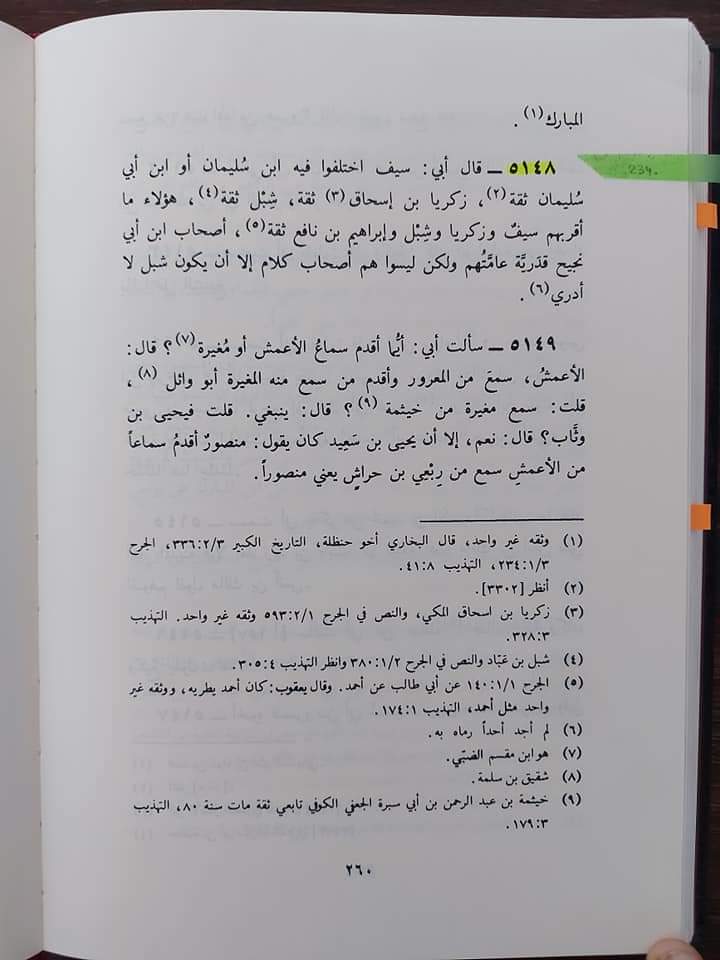 المبارك(١) .
٥١٤٨ ــ قال أبي: سيف اختلفوا فيه ابن سُليمان أو ابن أبي
سُليمان ثقة(٢)، زكريا بن إسحاق(٣) ثقة، شِبْل ثقة(٤)، هؤلاء ما
أقربهم سيفٌ وزكريا وشِبْل وإبراهيم بن نافع ثقة(٥)، أصحاب ابن أبي
نجيح قدَريَّة عامَّتُهم ولكن ليسوا هم أصحاب كلام إلا أن يكون شبل لا
أدري(٦) .
٥١٤٩ ــ سألت أبي: أيُّما أقدم سماعُ الأعمش أو مُغيرة(٧)؟ قال:
الأعمشُ، سمعَ من المعرور وأقدم من سمع منه المغيرة أبو وائل(٨)،
قلت: سمع مغيرة من خيثمة(٩)؟ قال: ينبغي. قلت فيحيى بن
وثَّاب؟ قال: نعم، إلا أن يحيى بن سَعِيد كان يقول: منصورٌ أقدمُ سماعاً
من الأعمشِ سمع من رِبْعي بن حراشٍ يعني منصوراً.
(١) وثقه غير واحد، قال البخاري أخو حنظلة، التاريخ الكبير ٣٣٦:٢/٣، الجرح
٢٣٤:١/٣، التهذيب ٤١:٨.
(٢) أنظر [٣٣٠٢].
(٣) زكريا بن اسحاق المكي، والنص في الجرح ٥٩٣:٢/١ وثقه غير واحد. التهذيب
٣٢٨:٣.
(٤) شبل بن عبّاد والنص في الجرح ٣٨٠:١/٢ وانظر التهذيب ٣٠٥:٤.
(٥) الجرح ١٤٠:١/١ عن أبي طالب عن أحمد. وقال يعقوب: كان أحمد يطريه، ووثقه غير
واحد مثل أحمد، التهذيب ١٧٤:١.
(٦) لم أجد أحداً رماه به.
(٧) هو ابن مقسم الضبّي.
(٨) شقيق بن سلمة.
(٩) خيثمة بن عبد الرحمن بن أبي سبرة الجعفي الكوفي تابعي ثقة مات سنة ٨٠، التهذيب
١٧٩:٣.
٢٦٠